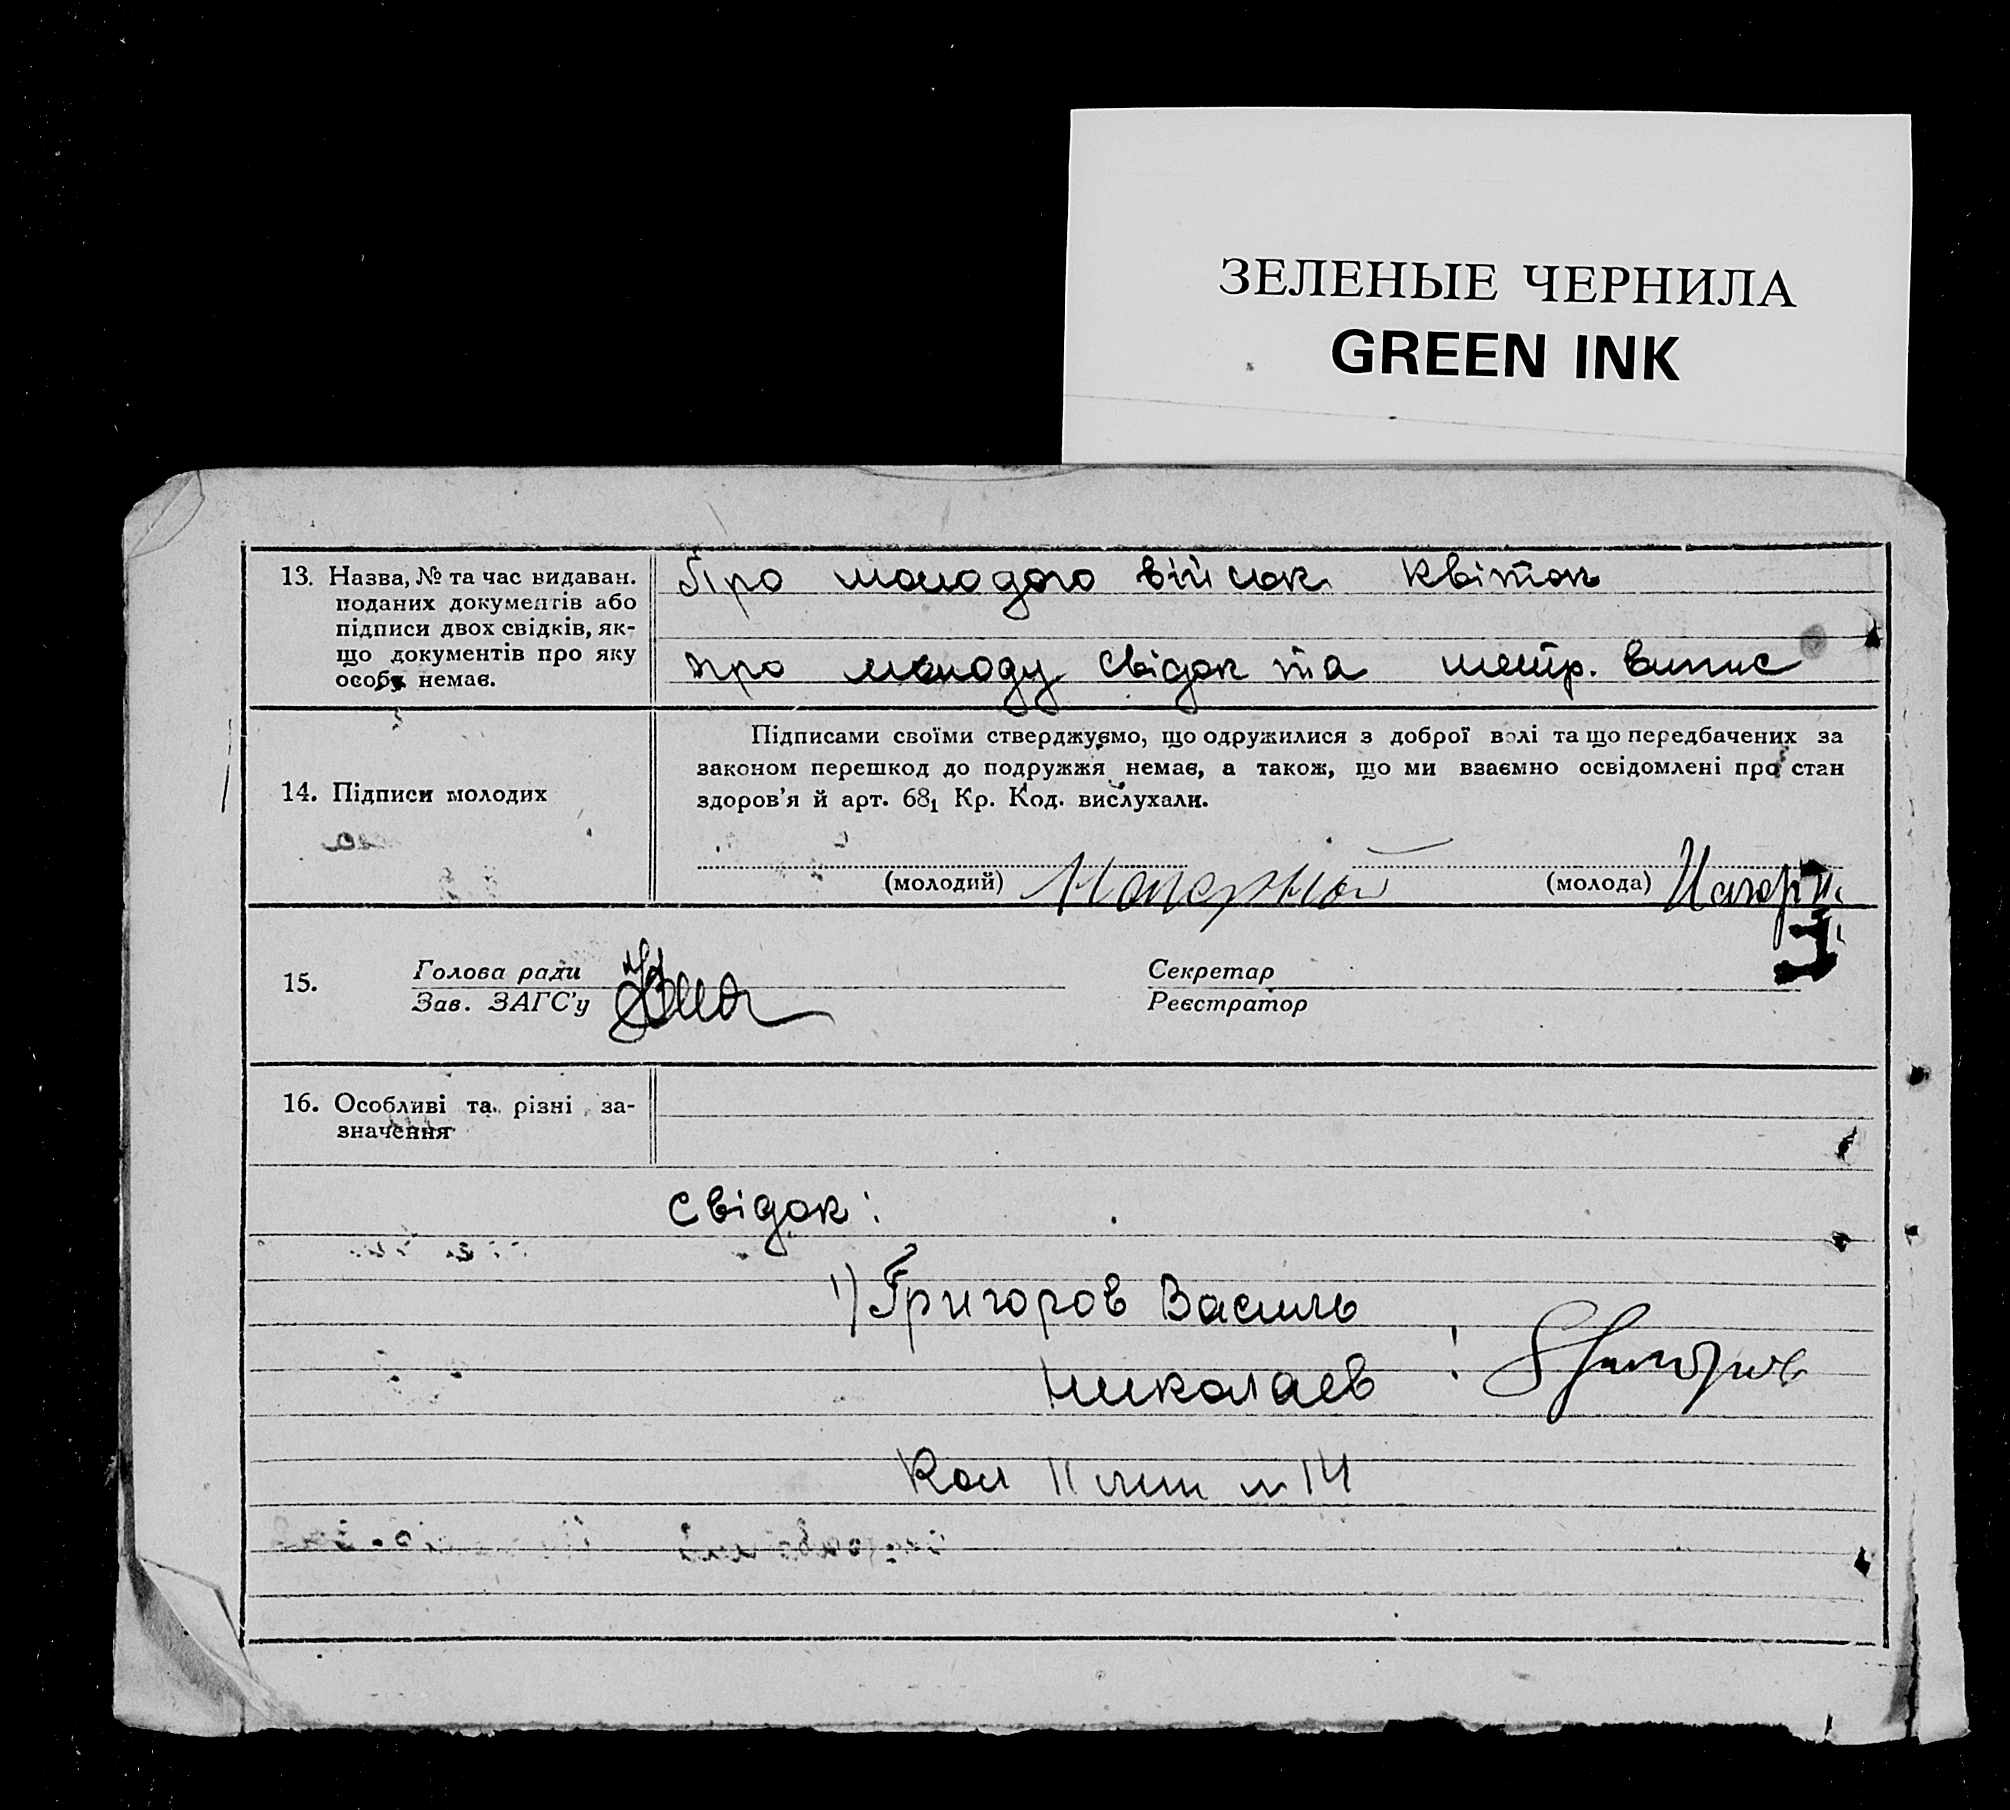 ЗЕЛЕНЫЕ ЧЕРНИЛА
GREEN INK
13. Назва, № та час видаван.
поданих документів або
підписи двох свідків, як-
що документів про яку
особу немає.
Про молодого військ. квіток
про молоду свідок та метр. випис
14. Підписи молодих
Підписами своїми стверджуємо, що одружилися з доброї волі та що передбачених за
законом перешкод до подружжя немає, а також, що ми взаємно освідомлені про стан
здоров'я й арт. 68₁ Кр. Код. вислухали.
(молодий)
(молода)
15.
Голова ради
Зав. ЗАГС'у
Секретар
Реєстратор
16. Особливі та різні за-
значення
Свідок:
1) Григоров Василь
Николаев
Кол II 14